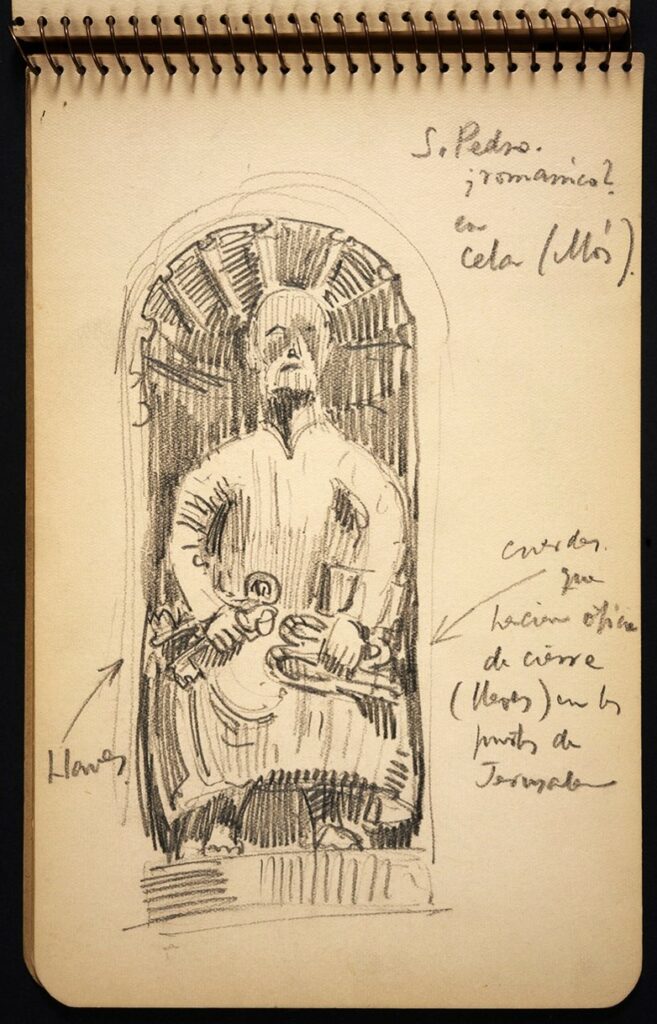 S. Pedro.
¿románico?
en
Cela (Mós).
cuerdas
que
hacían oficio
de cierre
(llaves) en las
puertas de
Jerusalen
Llaves